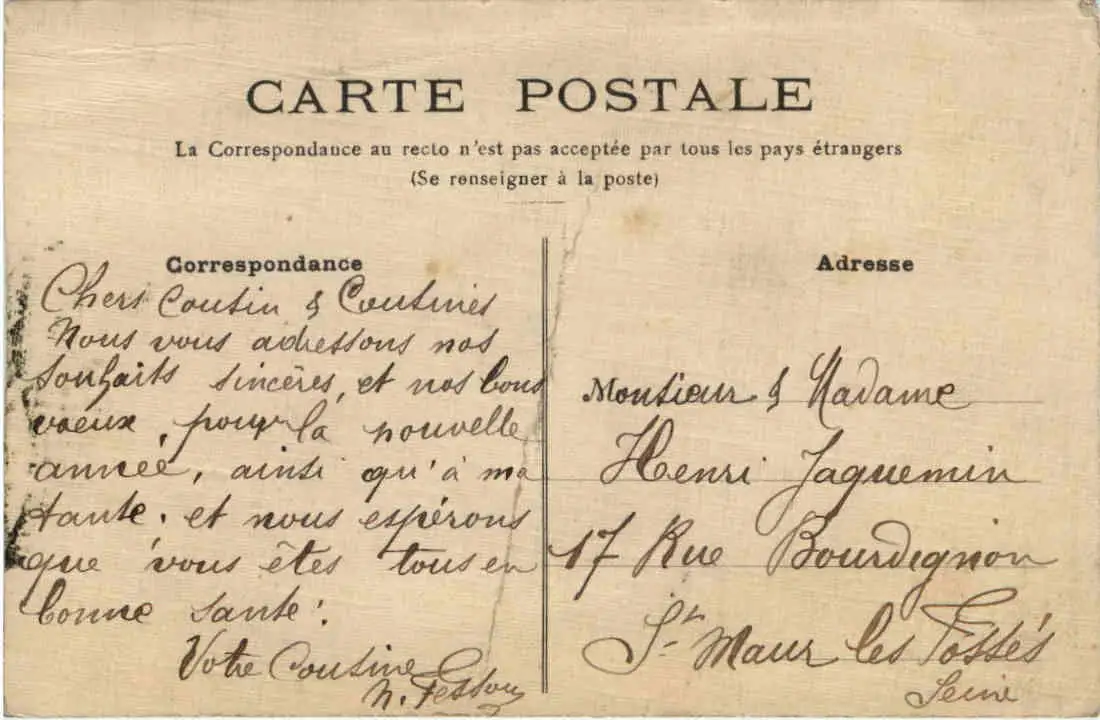 CARTE POSTALE
La Correspondance au recto n'est pas acceptée par tous les pays étrangers
(Se renseigner à la poste)
Correspondance
Chers Cousin & Cousines
Nous vous adressons nos
souhaits sincères, et nos bons
voeux, pour la nouvelle
année, ainsi qu'à ma
tante. et nous espérons
que vous êtes tous en
bonne santé.
Votre Cousine
N.
Adresse
Monsieur & Madame
Henri Jaquemin
17 Rue Bourdignon
St Maur les Fossés
Seine